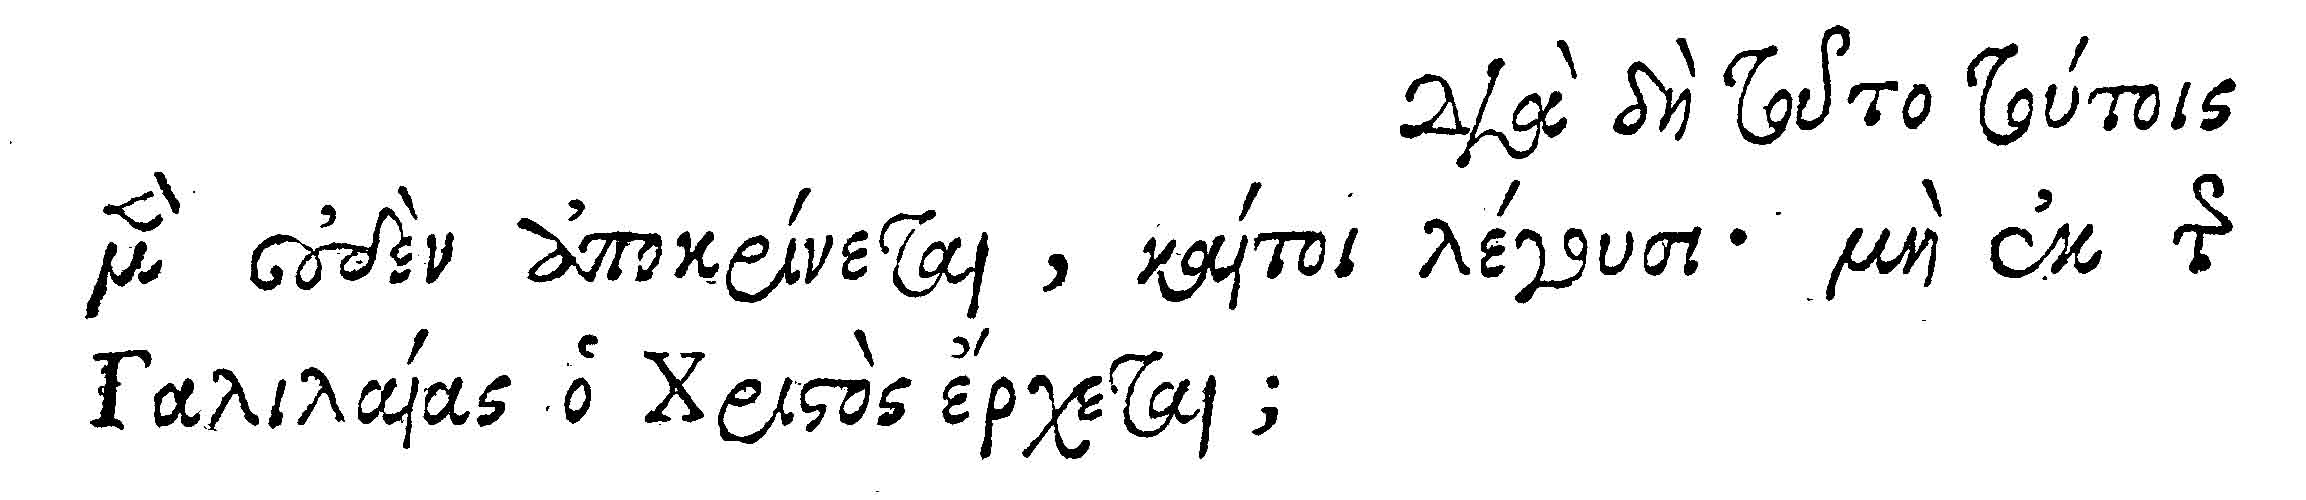 Διὰ δὴ τοῦτο τούτοις
μὲν οὐδὲν ἀποκρίνεται, καίτοι λέγουσι· μὴ ἐκ τῆς
Γαλιλαίας ὁ Χριστὸς ἔρχεται;